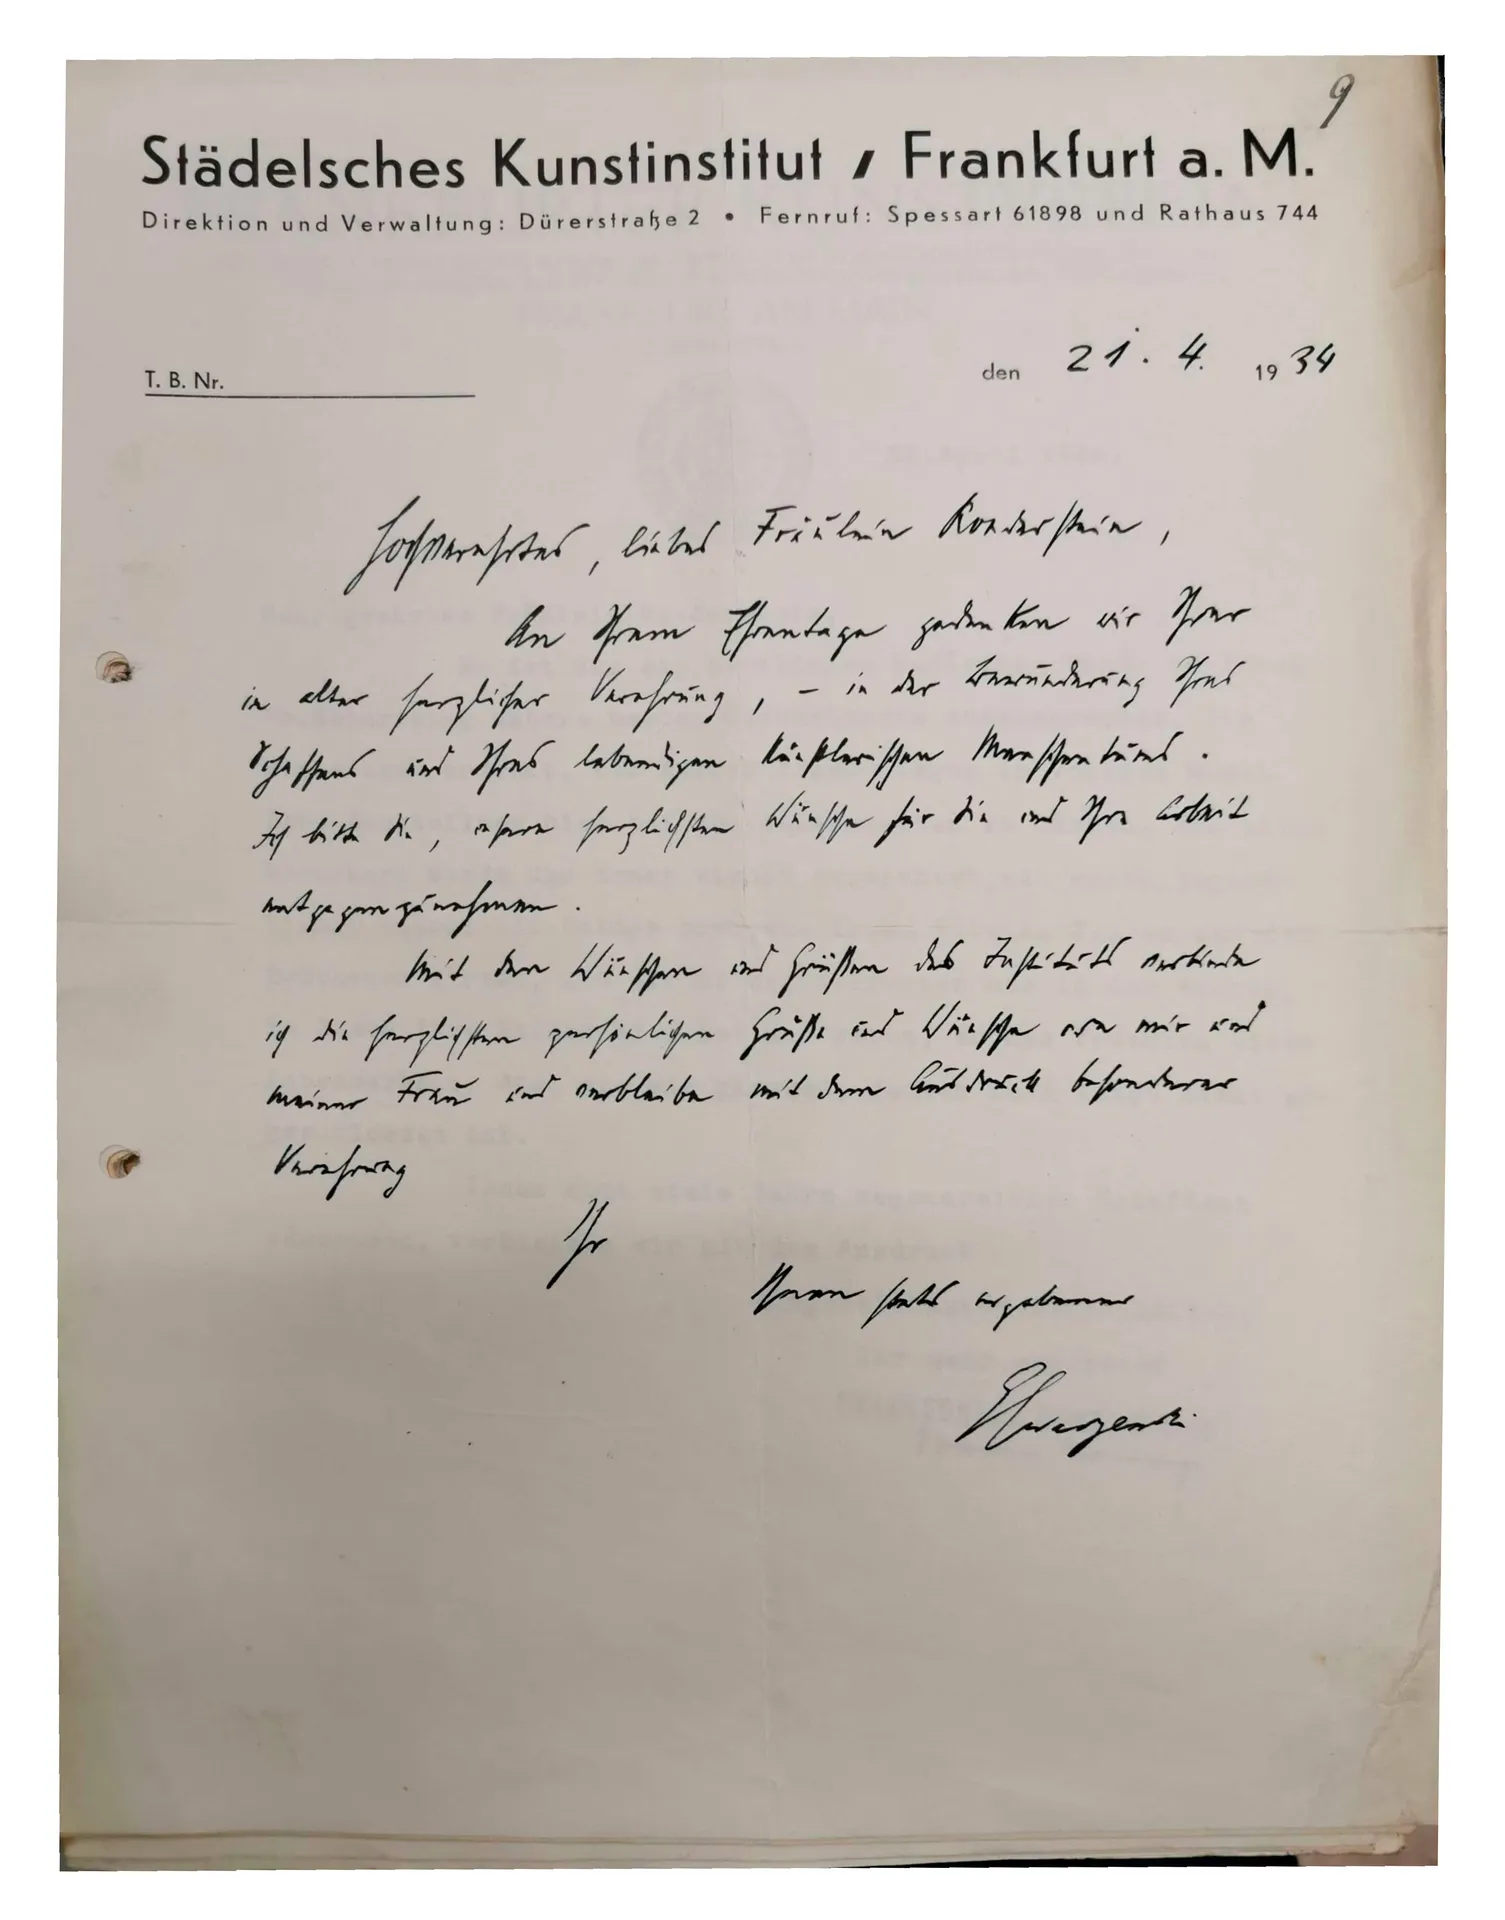 9
Städelsches Kunstinstitut / Frankfurt a. M.
Direktion und Verwaltung: Dürerstraße 2 • Fernruf: Spessart 61898 und Rathaus 744
T. B. Nr.
den 21. 4. 1934
Hochverehrtes, liebes Fräulein Roederstein,
An Ihrem Ehrentage gedenken wir Ihrer
in alter herzlicher Verehrung, – in der Bewunderung Ihres
Schaffens und Ihres lebendigen künstlerischen Menschentums.
Ich bitte Sie, unsere herzlichsten Wünsche für Sie und Ihre Arbeit
entgegenzunehmen.
Mit den Wünschen und Grüßen des Instituts verbinde
ich die herzlichsten persönlichen Grüße und Wünsche von mir und
meiner Frau und verbleibe mit dem Ausdruck besonderer
Verehrung
Ihr
Ihnen stets ergebener
Swarzenski